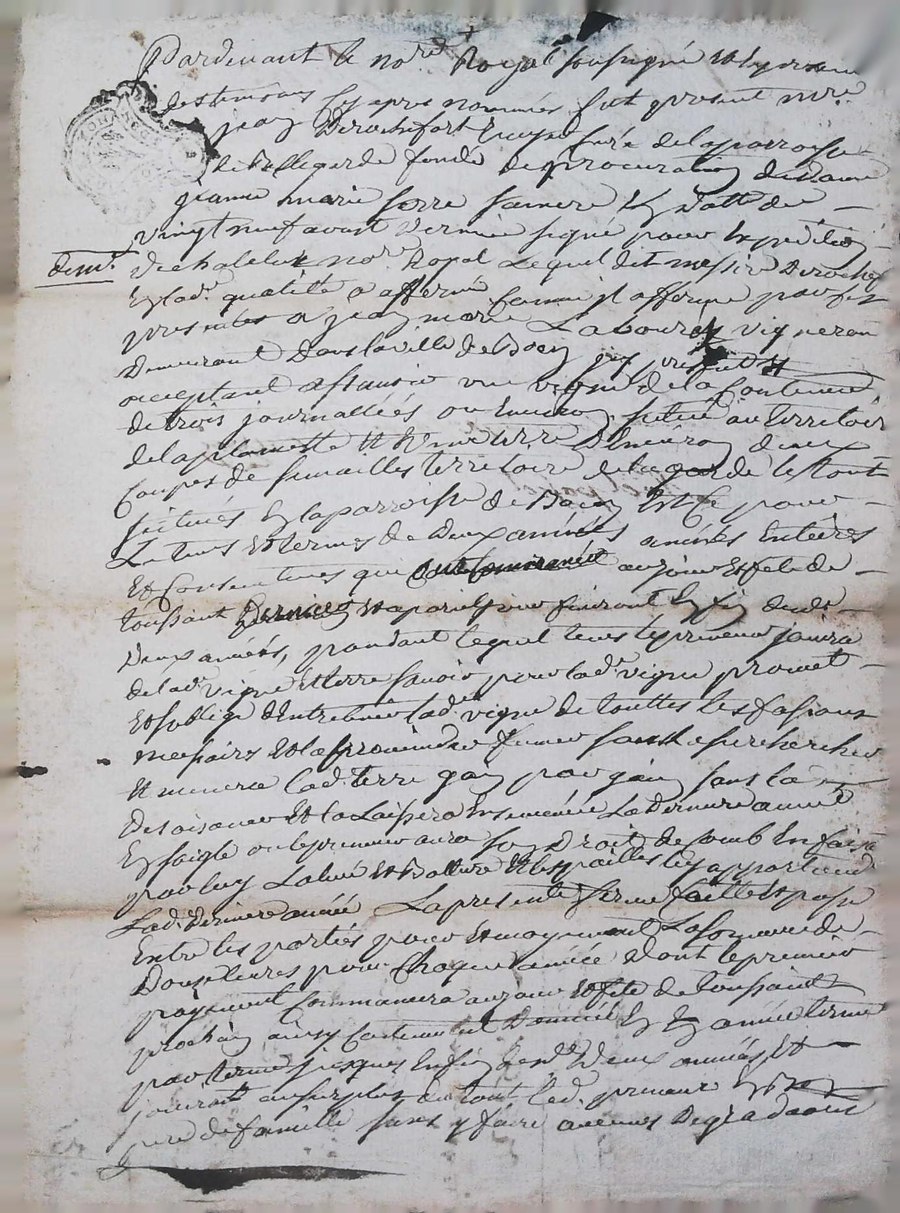 Pardevant le no.re Royal soussigné et en presence
des temoins cy apres nommés fut present m.re
jean Derochefort Ecuyer Curé de la parroisse
de Bellegarde fondé de procuration de dame
jeanne marie Sorre sa mere en datte du
vingt neuf aoust dernier signé pour Expedition
Duchatelux no.re Royal Lequel dit messire Derochefort
demt.
En lad.e qualité a affermé Comme il afferme par ses
presentes a jean marie Labouré vigneron
Demeurant Dans la ville de Boen icy present et
acceptant assavoir une vigne de la Contenue
de trois journallées ou Environ, scitué au territoire
de la plamette et une terre D'environ deux
Coupes de semailles territoire de la garde le tout
scitués En la parroisse de Boen Et Ce pour
Le tems et termes de Deux années années Entieres
Et Consecutives qui ont Commencé au jour et fete de
toussaint Dernier et a pareil jour finiront En fin desd.
Deux années, pendant lequel tems le preneur jouira
de lad.e vigne et terre savoir pour lad.e vigne promet
Et s'obllige d'Entretenir lad.e vigne de touttes les fasions
necessaires
Et menera lad.e terre gain par gain sans la
Desaisonner Et la Laissera Ensemencée La Derniere année
En saigle ou le preneur aura son Droit de Comb En faisant
par luy
Lad.e Derniere année La presente ferme faitte Et passé
Entre les parties pour et moyenant La somme de
Douze livres pour Chaque année Dont le premier
payement Commancera au jour et fete de toussaint
prochain ainsy Continuera D'année En En année terme
par terme jusques En fin desd. Deux années Et
jouira au surplus du tout led. preneur En bon
pere de famille sans y faire aucunes Degradaons